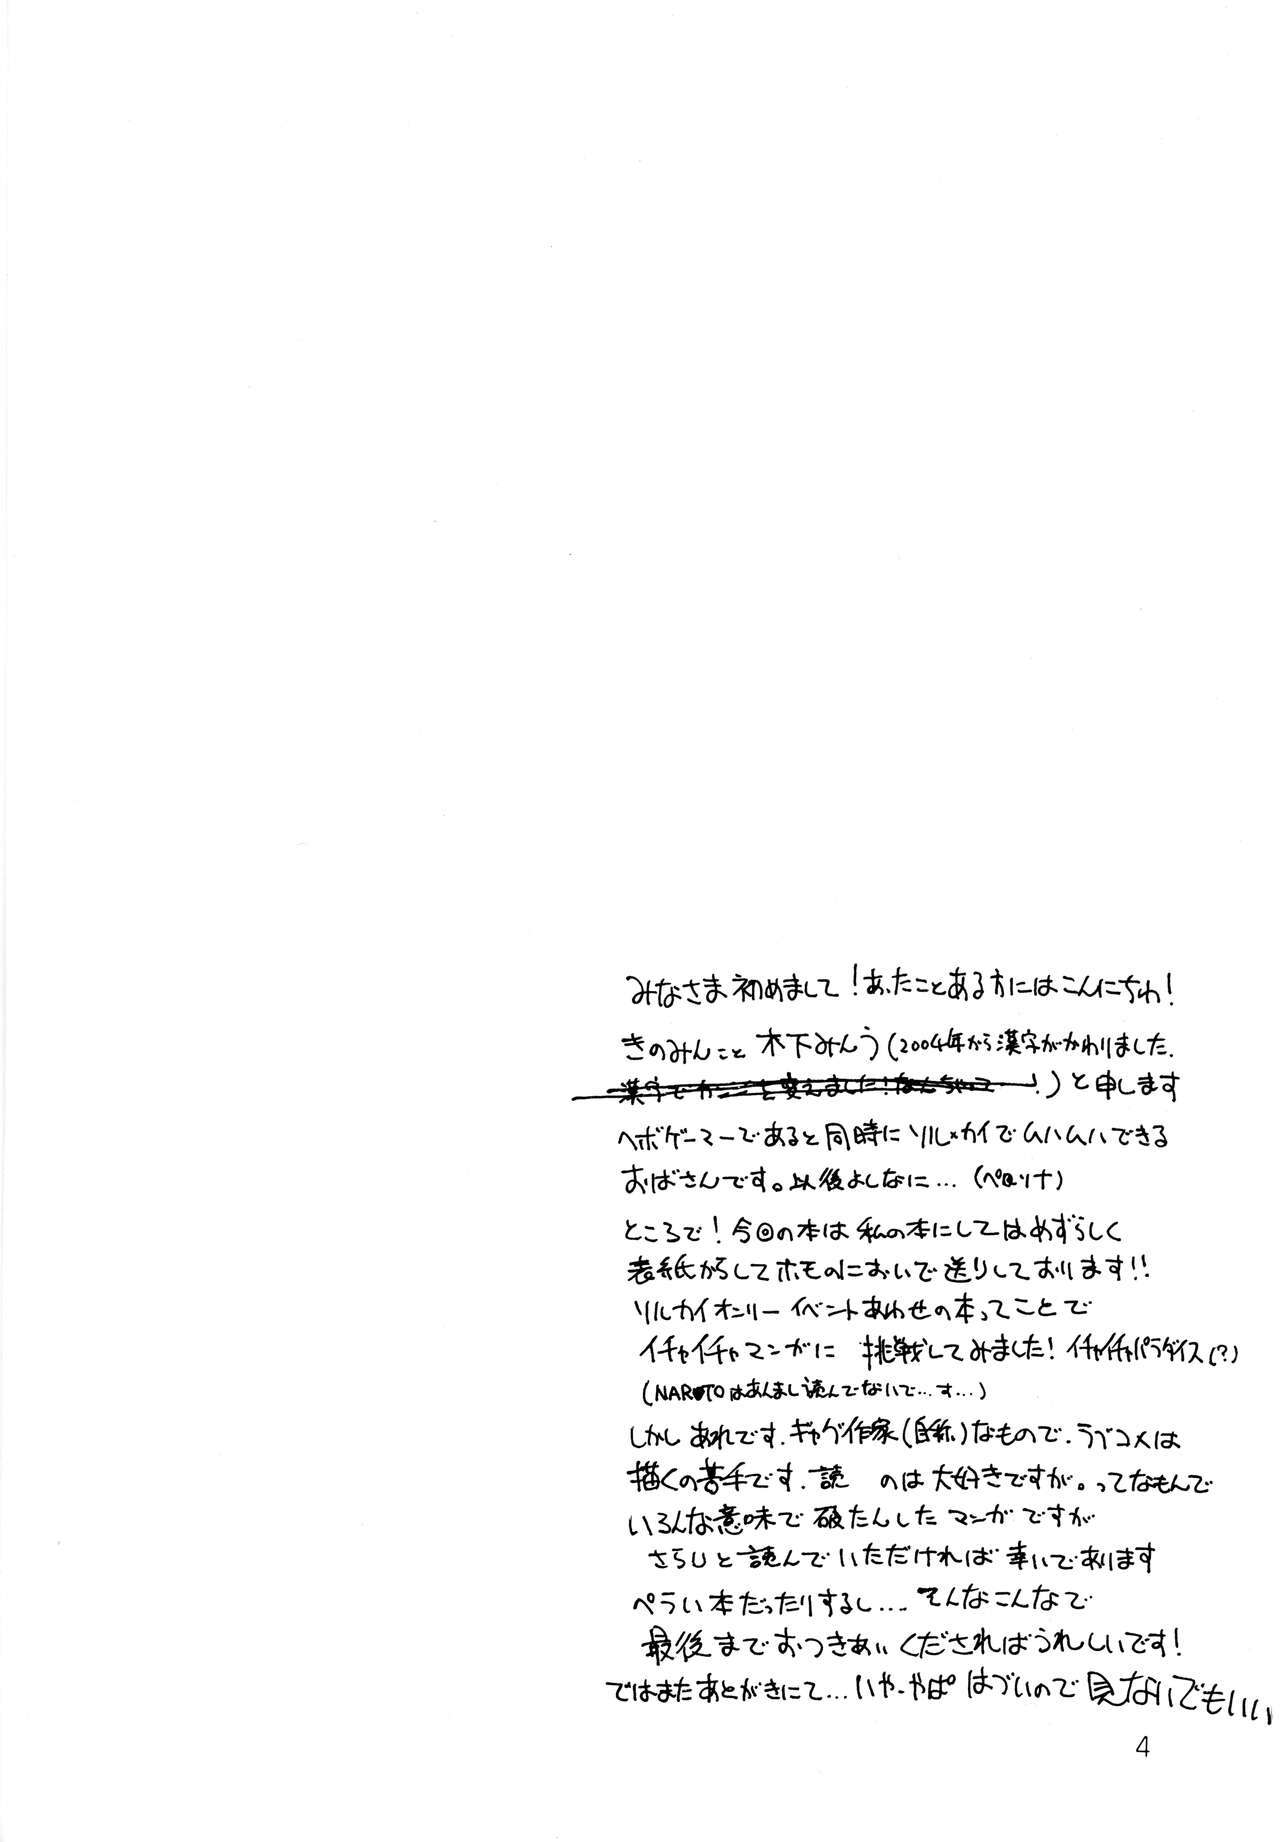 みなさま初めまして！あったことある方にはこんにちわ！
きのみんこと 木下みんう(2004年から漢字がかわりました.
漢字で を変えました！なんちゃって ！)と申します
ヘボゲーマーであると同時にソル×カイでムハムハできる
おばさんです。以後よしなに…(ペロリナ)
ところで！今回の本は私の本にしてはめずらしく
表紙からしてホモのにおいで送りしております!!
ソルカイオンリーイベントあわせの本ってことで
イチャイチャマンガに 挑戦してみました！イチャイチャパラダイス(?)
(NARUTOはあんまし読んでないで…す…)
しかし あれです.ギャグ作家(自称)なもので.ラブコメは
描くの苦手です.読 のは大好きですが。ってなもんで
いろんな意味で破たんしたマンガですが
さらりと読んでいただければ幸いであります
ペラい本だったりするし…そんなこんなで
最後までおつきあいくださればうれしいです！
ではまたあとがきにて…いや-やぱ はづいので見ないでもいい
4